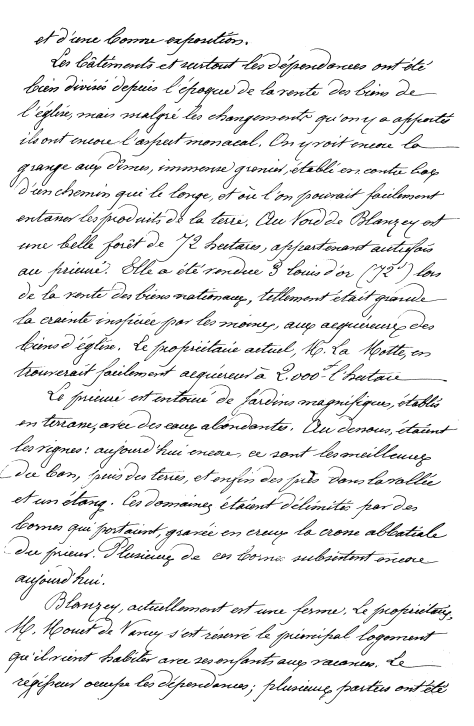 et d'une bonne exposition.
Les bâtiments et surtout les dépendances ont été
bien divisés depuis l'époque de la vente des biens de
l'église, mais malgré les changements qu'on y a apportés
ils ont encore l'aspect monacal. On y voit encore la
grange aux dîmes, immense grenier, établi en contre bas
d'un chemin qui le longe, et où l'on pouvait facilement
entasser les produits de la terre. Au Nord de Blanzey est
une belle forêt de 72 hectares, appartenant autrefois
au prieuré. Elle a été vendue 3 louis d'or (72ᶠ) lors
de la vente des biens nationaux, tellement était grande
la crainte inspirée par les moines, aux acquéreurs des
biens d'église. Le propriétaire actuel, M. La Motte, en
trouverait facilement acquéreur à 2.000ᶠ l'hectare
Le prieuré est entouré de jardins magnifiques, établis
en terrasse, avec des eaux abondantes. Au dessous, étaient
les vignes: aujourd'hui encore, ce sont les meilleures
du ban, puis des terres, et enfin des prés dans la vallée
et un étang. Ces domaines étaient délimités par des
bornes qui portaient, gravée en creux la crosse abbatiale
du prieur. Plusieurs de ces bornes subsistent encore
aujourd'hui.
Blanzey, actuellement est une ferme. Le propriétaire,
M. de Nancy s'est réservé le principal logement
qu'il vient habiter avec ses enfants aux vacances. Le
régisseur occupe les dépendances; plusieurs parties ont été